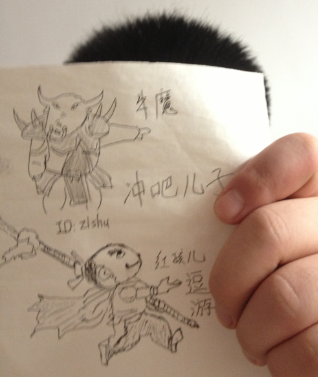 牛魔
冲吧儿子
ID: zishu
红孩儿
逗
游